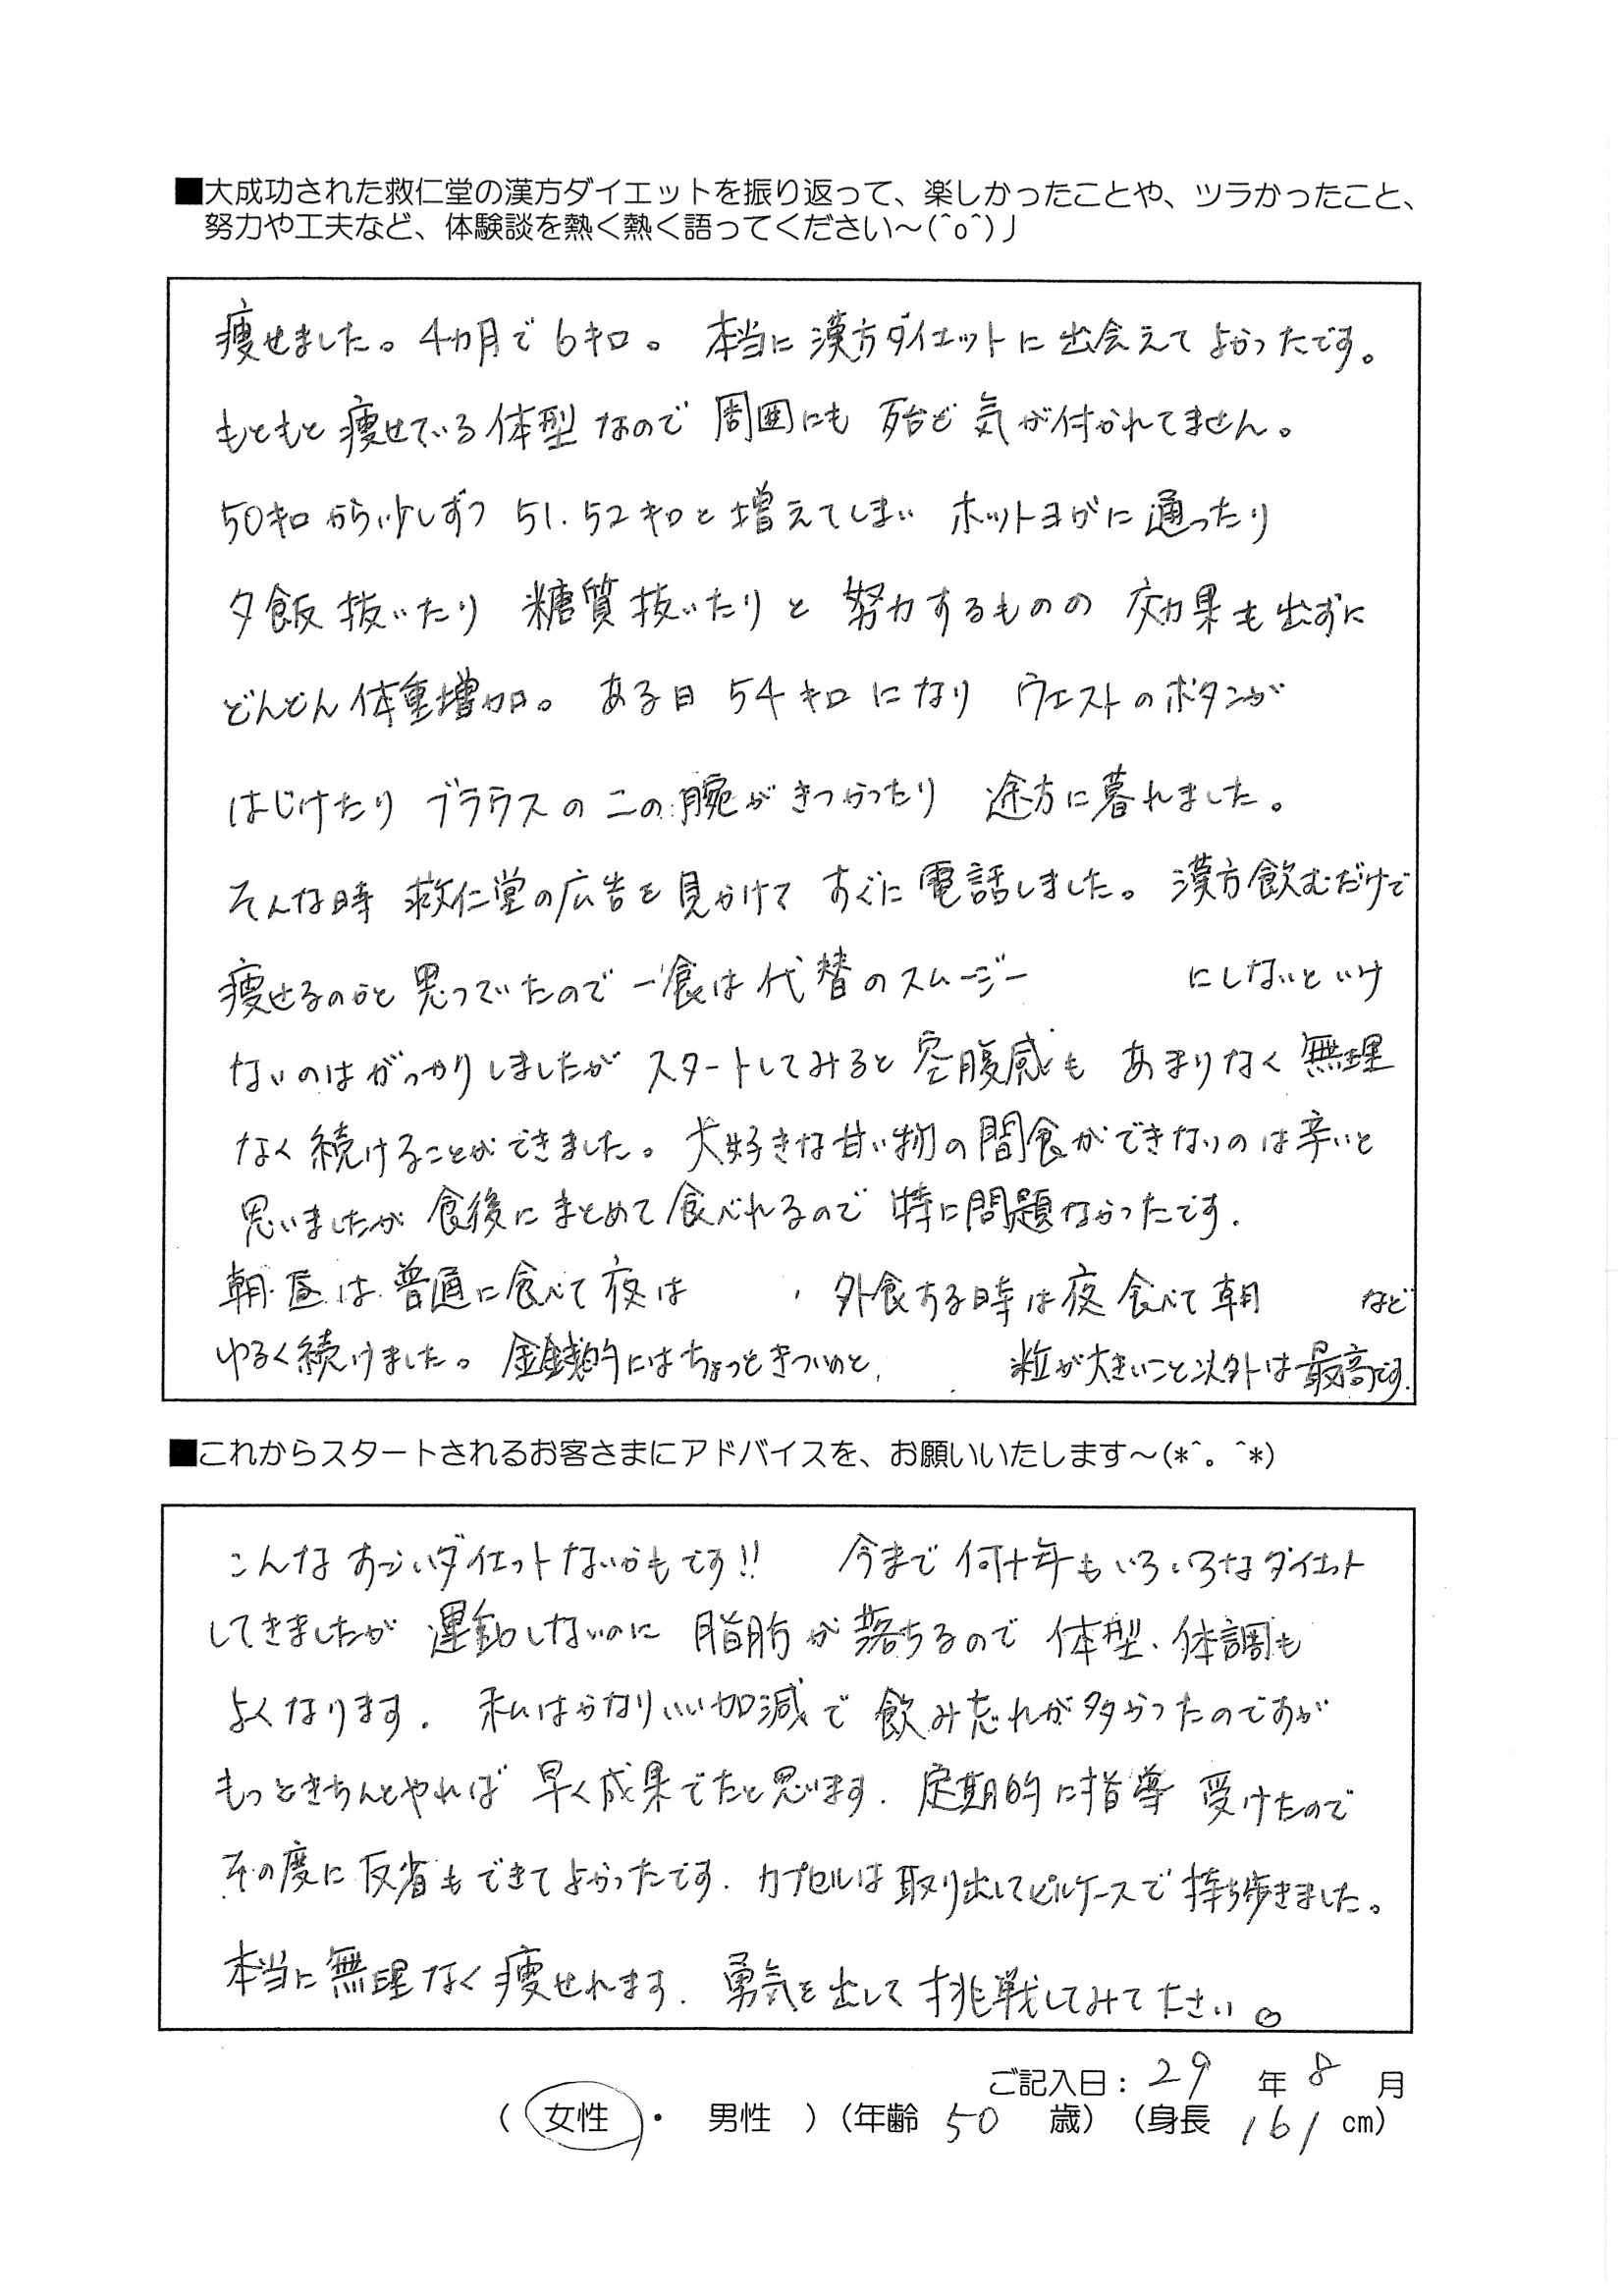 ■大成功された救仁堂の漢方ダイエットを振り返って、楽しかったことや、ツラかったこと、
努力や工夫など、体験談を熱く熱く語ってください～(^o^)丿
痩せました。4カ月で6キロ。 本当に漢方ダイエットに出会えてよかったです。
もともと痩せている体型なので周囲にも殆ど気が付かれてません。
50キロから少しずつ 51.52キロと増えてしまい ホットヨガに通ったり
夕飯抜いたり 糖質抜いたりと 努力するものの 効果も出ずに
どんどん体重増加。 ある日 54キロになり ウエストのボタンが
はじけたり ブラウスの二の腕がきつかったり 途方に暮れました。
そんな時 救仁堂の広告を見かけて すぐに電話しました。 漢方飲むだけで
痩せるのかと思っていたので一食は代替のスムージー にしないといけ
ないのはがっかりしましたが スタートしてみると空腹感もあまりなく無理
なく続けることができました。 大好きな甘い物の間食ができないのは辛いと
思いましたが 食後にまとめて食べれるので 特に問題なかったです.
朝・昼は普通に食べて夜は 、外食する時は夜食べて朝 など
ゆるく続けました。 金銭的にはちょっときついのと, 粒が大きいこと以外は最高です.
■これからスタートされるお客さまにアドバイスを、お願いいたします～(*^。^*)
こんなすごいダイエットないかもです!! 今まで何十年もいろいろなダイエット
してきましたが 運動しないのに 脂肪が落ちるので 体型、体調も
よくなります. 私はかなりいい加減で 飲み忘れが多かったのですが
もっときちんとやれば 早く成果でたと思います. 定期的に指導 受けたので
その度に反省もできてよかったです. カプセルは取り出してピルケースで持ち歩きました。
本当に無理なく痩せれます. 勇気を出して挑戦してみて下さい。
ご記入日：29 年 8 月
( 女性 ・ 男性 ) (年齢 50 歳) (身長 161 cm)